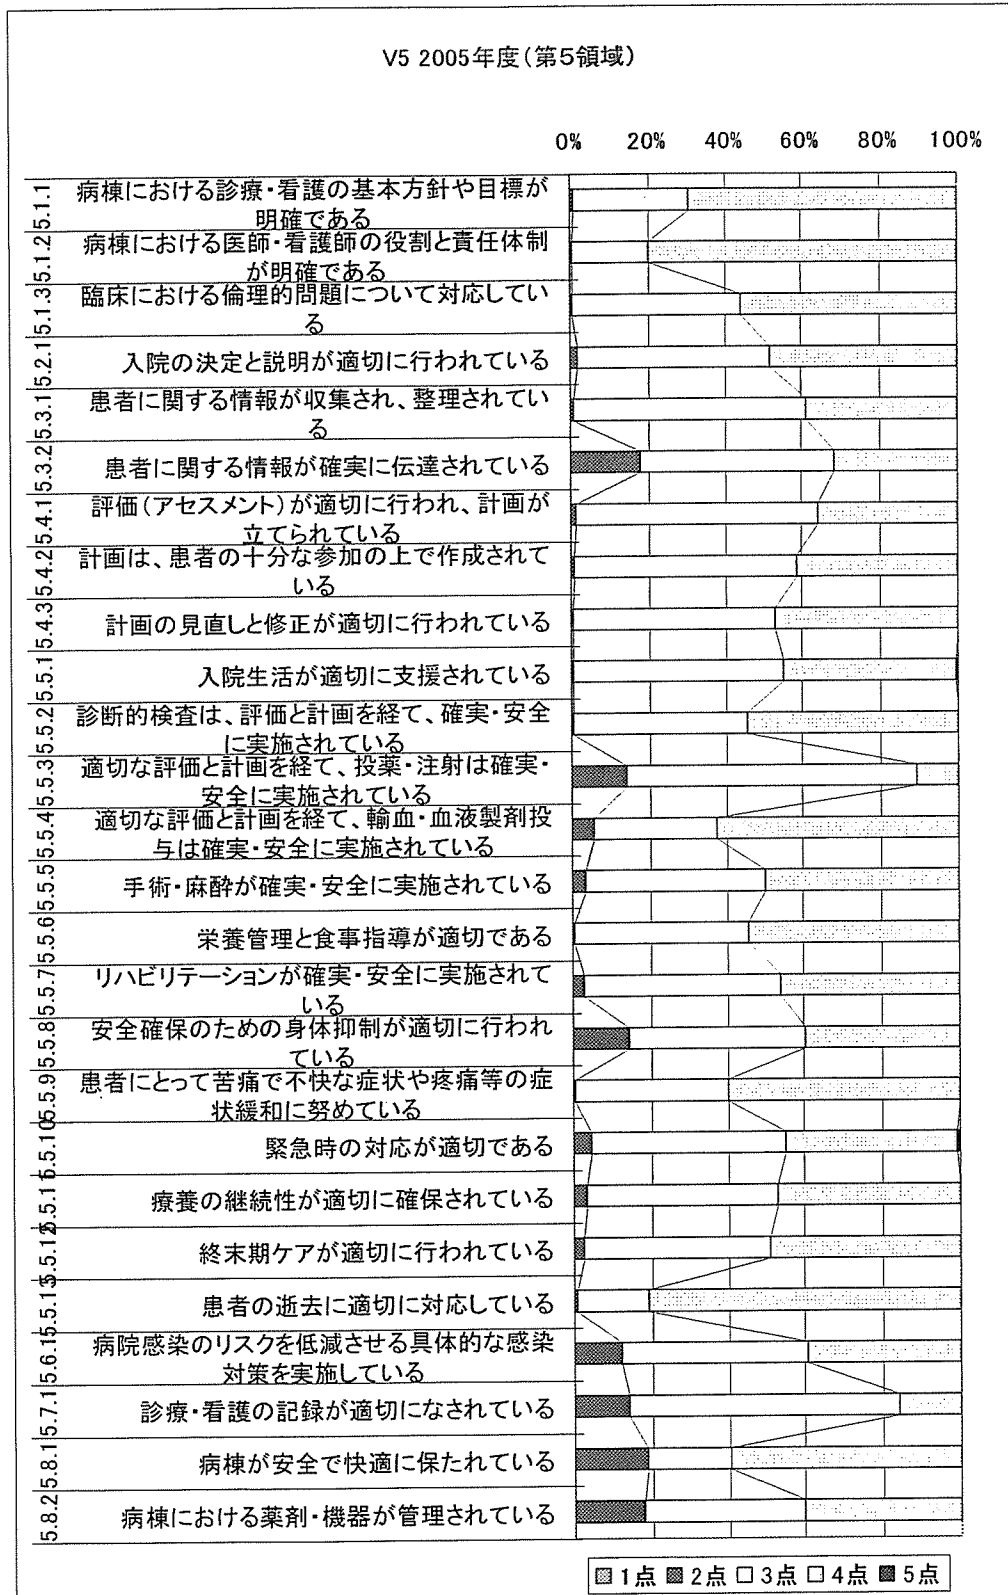 V5 2005年度(第5領域)
0% 20% 40% 60% 80% 100%
5.1.1 病棟における診療・看護の基本方針や目標が
明確である
5.1.2 病棟における医師・看護師の役割と責任体制
が明確である
5.1.3 臨床における倫理的問題について対応してい
る
5.2.1 入院の決定と説明が適切に行われている
5.3.1 患者に関する情報が収集され、整理されてい
る
5.3.2 患者に関する情報が確実に伝達されている
5.4.1 評価(アセスメント)が適切に行われ、計画が
立てられている
5.4.2 計画は、患者の十分な参加の上で作成されて
いる
5.4.3 計画の見直しと修正が適切に行われている
5.5.1 入院生活が適切に支援されている
5.5.2 診断的検査は、評価と計画を経て、確実・安全
に実施されている
5.5.3 適切な評価と計画を経て、投薬・注射は確実・
安全に実施されている
5.5.4 適切な評価と計画を経て、輸血・血液製剤投
与は確実・安全に実施されている
5.5.5 手術・麻酔が確実・安全に実施されている
5.5.6 栄養管理と食事指導が適切である
5.5.7 リハビリテーションが確実・安全に実施されて
いる
5.5.8 安全確保のための身体抑制が適切に行われ
ている
5.5.9 患者にとって苦痛で不快な症状や疼痛等の症
状緩和に努めている
5.5.10 緊急時の対応が適切である
5.5.11 療養の継続性が適切に確保されている
5.5.12 終末期ケアが適切に行われている
5.5.13 患者の逝去に適切に対応している
5.6.1 病院感染のリスクを低減させる具体的な感染
対策を実施している
5.7.1 診療・看護の記録が適切になされている
5.8.1 病棟が安全で快適に保たれている
5.8.2 病棟における薬剤・機器が管理されている
1点 2点 3点 4点 5点